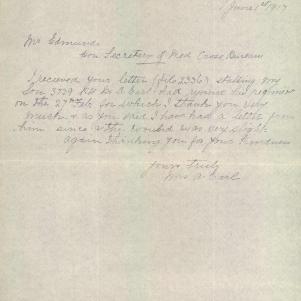 June 1st 1917
Mr Edmunds
Hon Secretary of Red Cross Bureau
I received your letter (file 2336) stating my
Son 3729 Pte D A Earl had rejoined his regiment
on the 27th Feb for which I thank you very
much & as you said I have had a letter from
him since & the wound was very slight
again Thanking you for your kindness
Yours Truly
Mrs A Earl